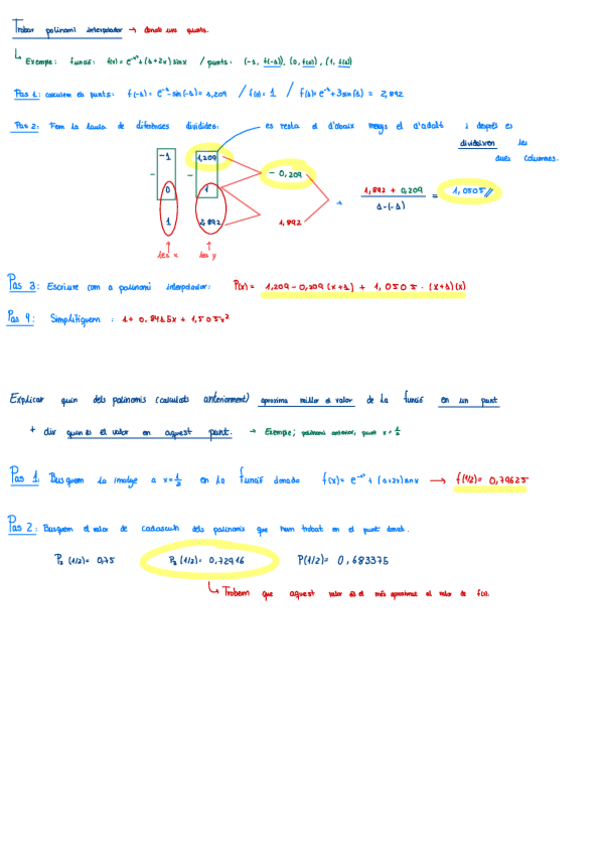 Trobar polinomi interpolador → donats uns punts.
↳ Exemple: funció: f(x) = e^-x² + (1+2x) sinx / punts: (-1, f(-1)), (0, f(0)), (1, f(1))
Pas 1: calculem els punts: f(-1) = e^-1 - sin(-1) = 1,209 / f(0) = 1 / f(1) = e^-1 + 3 sin(1) = 2,892
Pas 2: Fem la taula de diferències dividides: es resta el d'abaix menys el d'adalt i després es
divideixen les
dues columnes.
-1 1,209
- 0,209
0 1
1,892 + 0,209 / 1-(-1) = 1,0505
1 2,892 1,892
les x les y
Pas 3: Escriure com a polinomi interpolador: P(x) = 1,209 - 0,209 (x+1) + 1,0505 · (x+1)(x)
Pas 4: Simplifiquem: 1 + 0.8415x + 1,505x²
Explicar quin dels polinomis (calculats anteriorment) aproxima millor el valor de la funció en un punt
+ dir quin és el valor en aquest punt. → Exemple; polinomi anterior, punt x = 1/2
Pas 1. Busquem la imatge a x = 1/2 en la funció donada f(x) = e^-x² + (1+2x) sinx → f(1/2) = 0,79625
Pas 2: Busquem el valor de cadascun dels polinomis que hem trobat en el punt donat.
P₂ (1/2) = 0,75 P₃ (1/2) = 0,72916 P(1/2) = 0,683375
↳ Trobem que aquest valor és el més aproximat al valor de f(x).